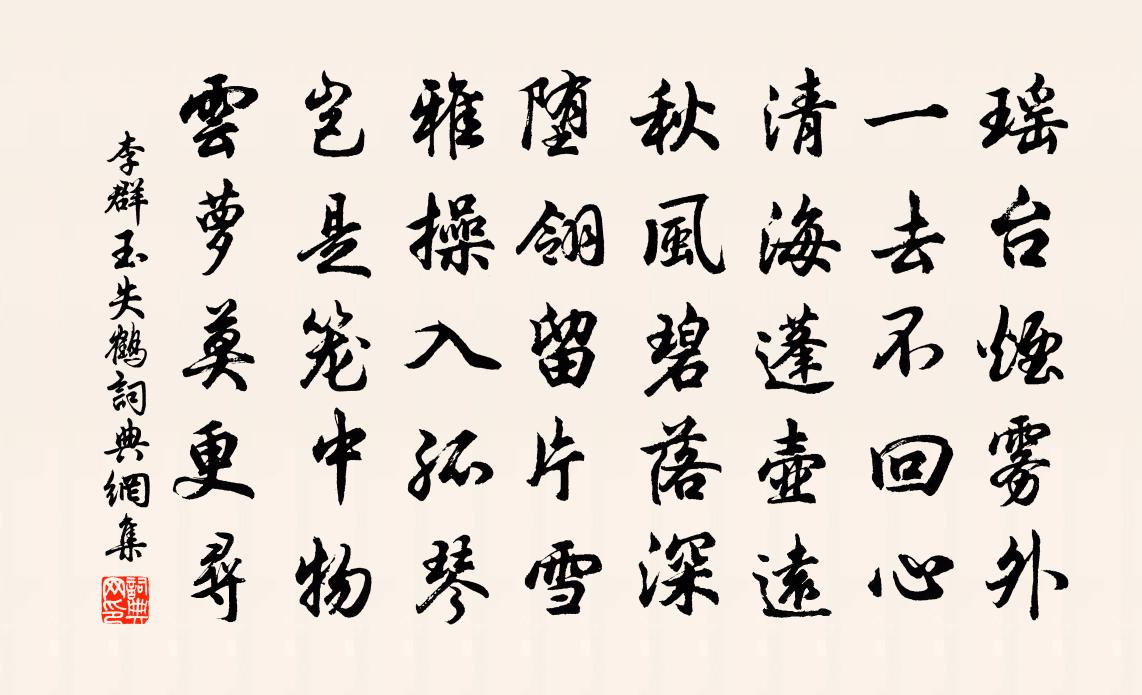 瑶台煙雾外
一去不回心
清海蓬壶遠
秋風碧落深
堕翎留片雪
雅操入孤琴
岂是笼中物
雲萝莫更尋
李群玉失鶴詞典網集
詞典網印